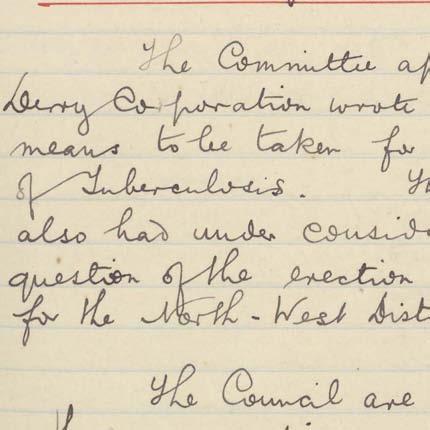 The Committee ap
Derry Corporation wrote
means to be taken for
of Tuberculosis. Th
also had under conside
question of the erection
for the North-West Dist
The Council are